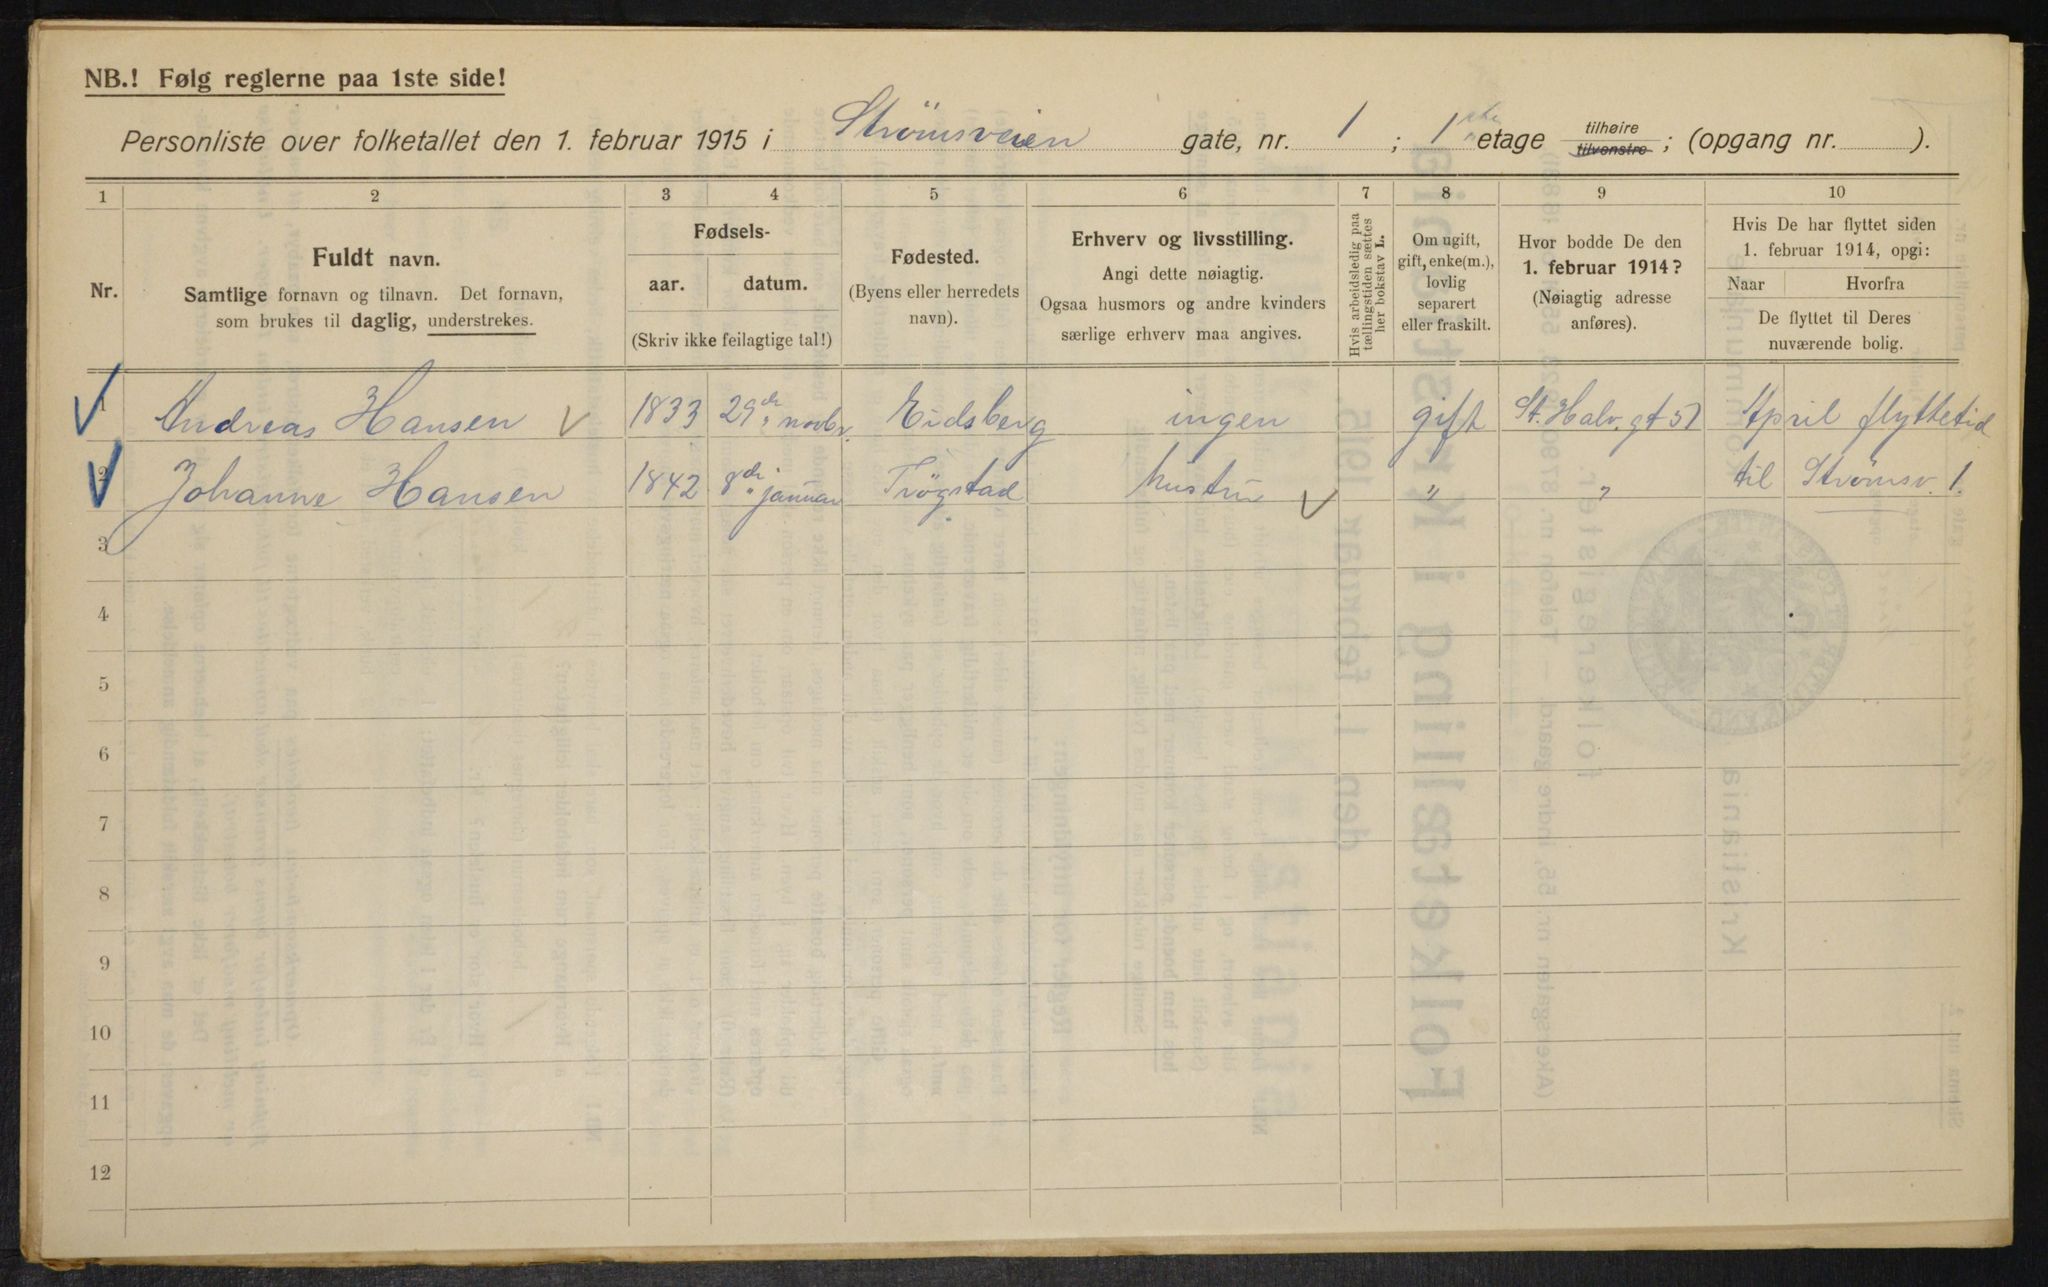 NB.! Følg reglerne paa 1ste side!
Personliste over folketallet den 1. februar 1915 i Strømsveien gate, nr. 1 ; 1ste etage tilhøire tilvenstre ; (opgang nr. ).
1 2 3 4 5 6 7 8 9 10
Nr.
Fuldt navn.
Samtlige fornavn og tilnavn. Det fornavn,
som brukes til daglig, understrekes.
Fødsels-
aar. datum.
(Skriv ikke feilagtige tal!)
Fødested.
(Byens eller herredets
navn).
Erhverv og livsstilling.
Angi dette nøiagtig.
Ogsaa husmors og andre kvinders
særlige erhverv maa angives.
Hvis arbeidsledig paa
tællingstiden sættes
her bokstav L.
Om ugift,
gift, enke(m.),
lovlig
separert
eller fraskilt.
Hvor bodde De den
1. februar 1914?
(Nøiagtig adresse
anføres).
Hvis De har flyttet siden
1. februar 1914, opgi:
Naar Hvorfra
De flyttet til Deres
nuværende bolig.
1 Andreas Hansen 1833 29de novbr. Eidsberg ingen gift St. Halv. gt 51 April flyttetid
2 Johanne Hansen 1842 8de januar Trögstad hustru " " til Strömsv. 1.
3
4
5
6
7
8
9
10
11
12